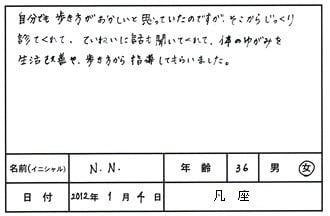 自分でも歩き方がおかしいと思っていたのですが、そこからじっくり
診てくれて、ていねいに話も聞いてくれて、体のゆがみを
生活改善や、歩き方から指導してもらいました。
名前(イニシャル) N.N. 年齢 36 男 女
日付 2012年 1月 4日 凡座